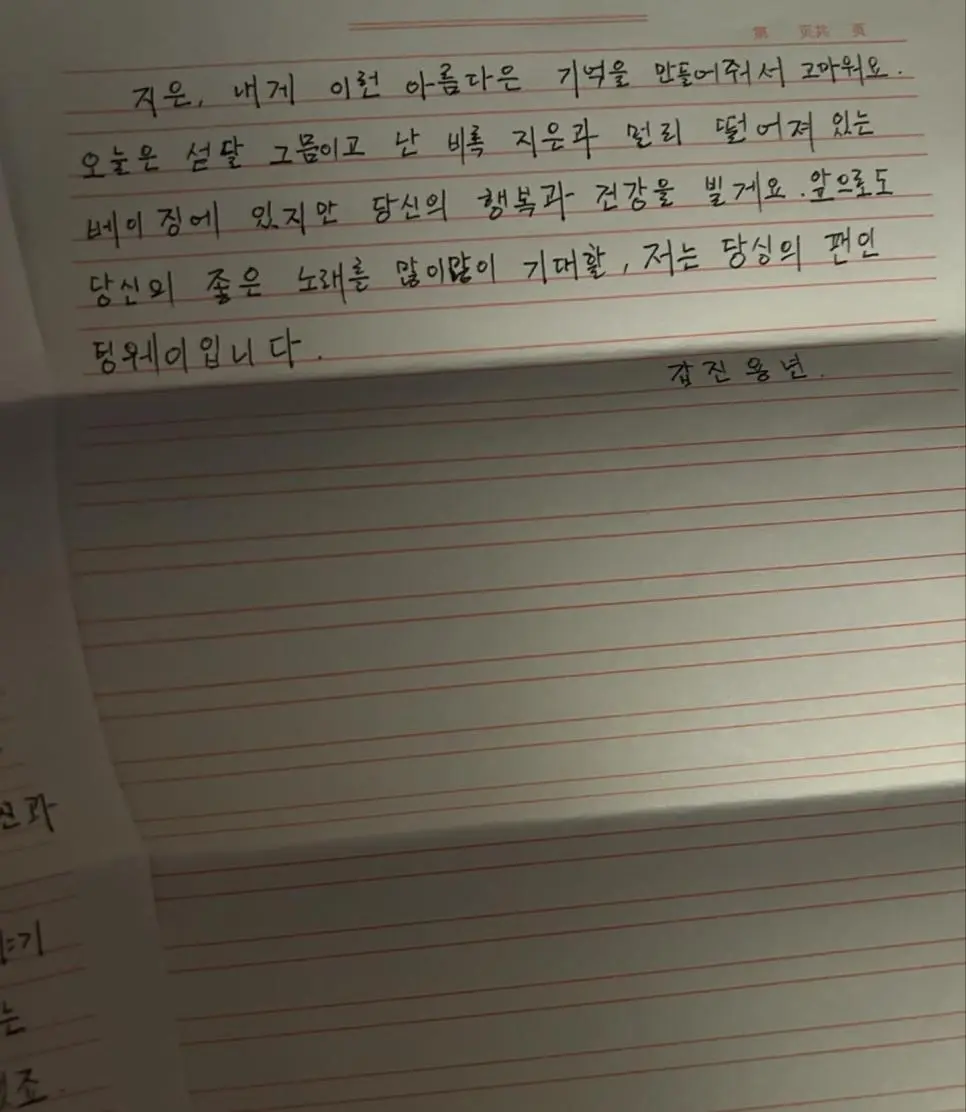 第 页共 頁
지은, 내게 이런 아름다은 기억을 만들어줘서 고마워요.
오늘은 섣달 그믐이고 난 비록 지은과 멀리 떨어져 있는
베이징에 있지만 당신의 행복과 건강을 빌게요. 앞으로도
당신의 좋은 노래를 많이많이 기대할, 저는 당싱의 팬인
딩웨이입니다.
갑진용년.
신과
기
는
조.